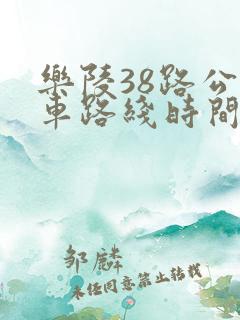 樂陵38路公
車路綫時間
鄒麟
未经同意禁止转载